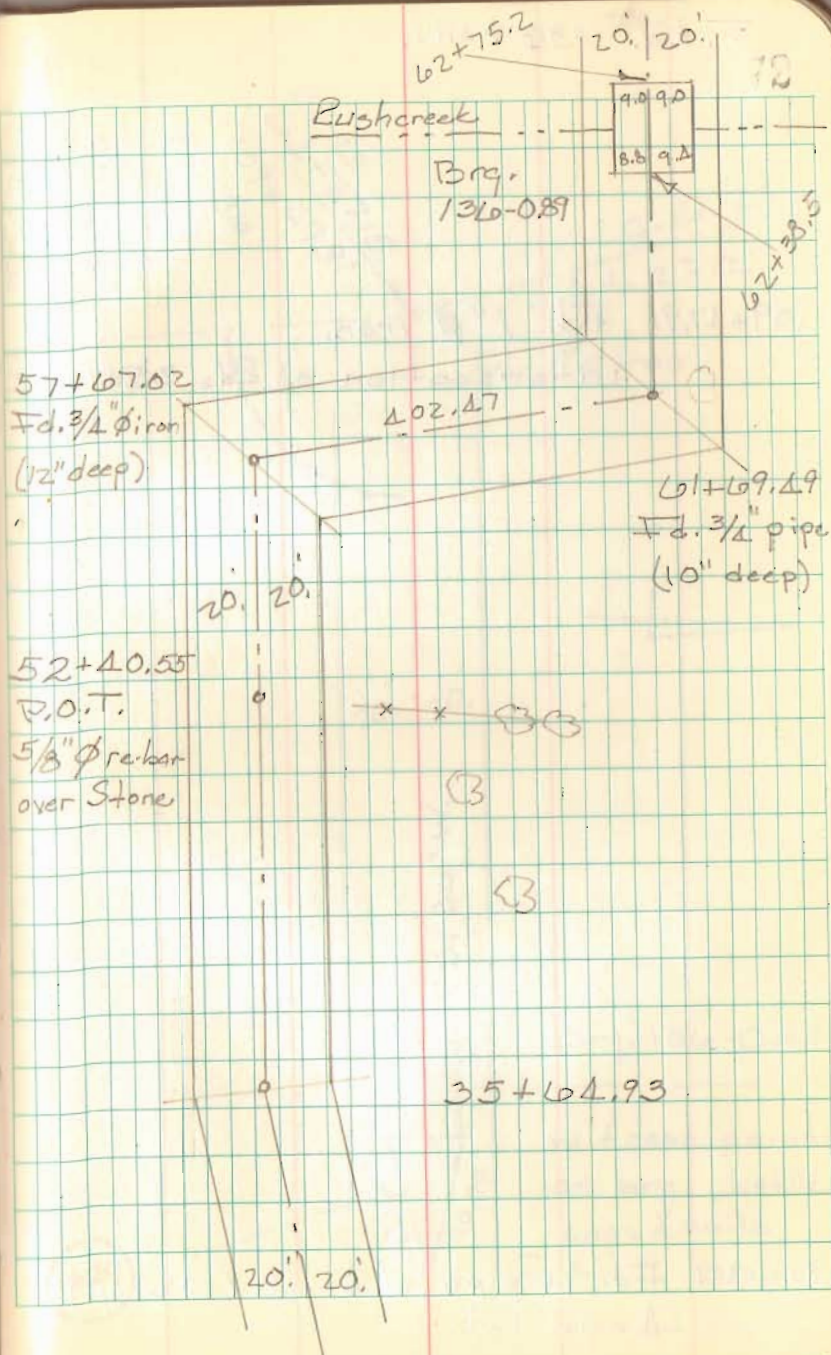 62+75.2
20.' 20.'
12
Rushcreek
9.0 9.0
8.8 9.4
Brg.
136-089
62+38.5
57+67.02
Fd. 3/4" Ø iron
(12" deep)
402.47
61+69.49
Fd. 3/4" pipe
(10" deep)
20.' 20.'
52+40.55
P.O.T.
5/8" Ø re-bar
over Stone
35+64.93
20.' 20.'